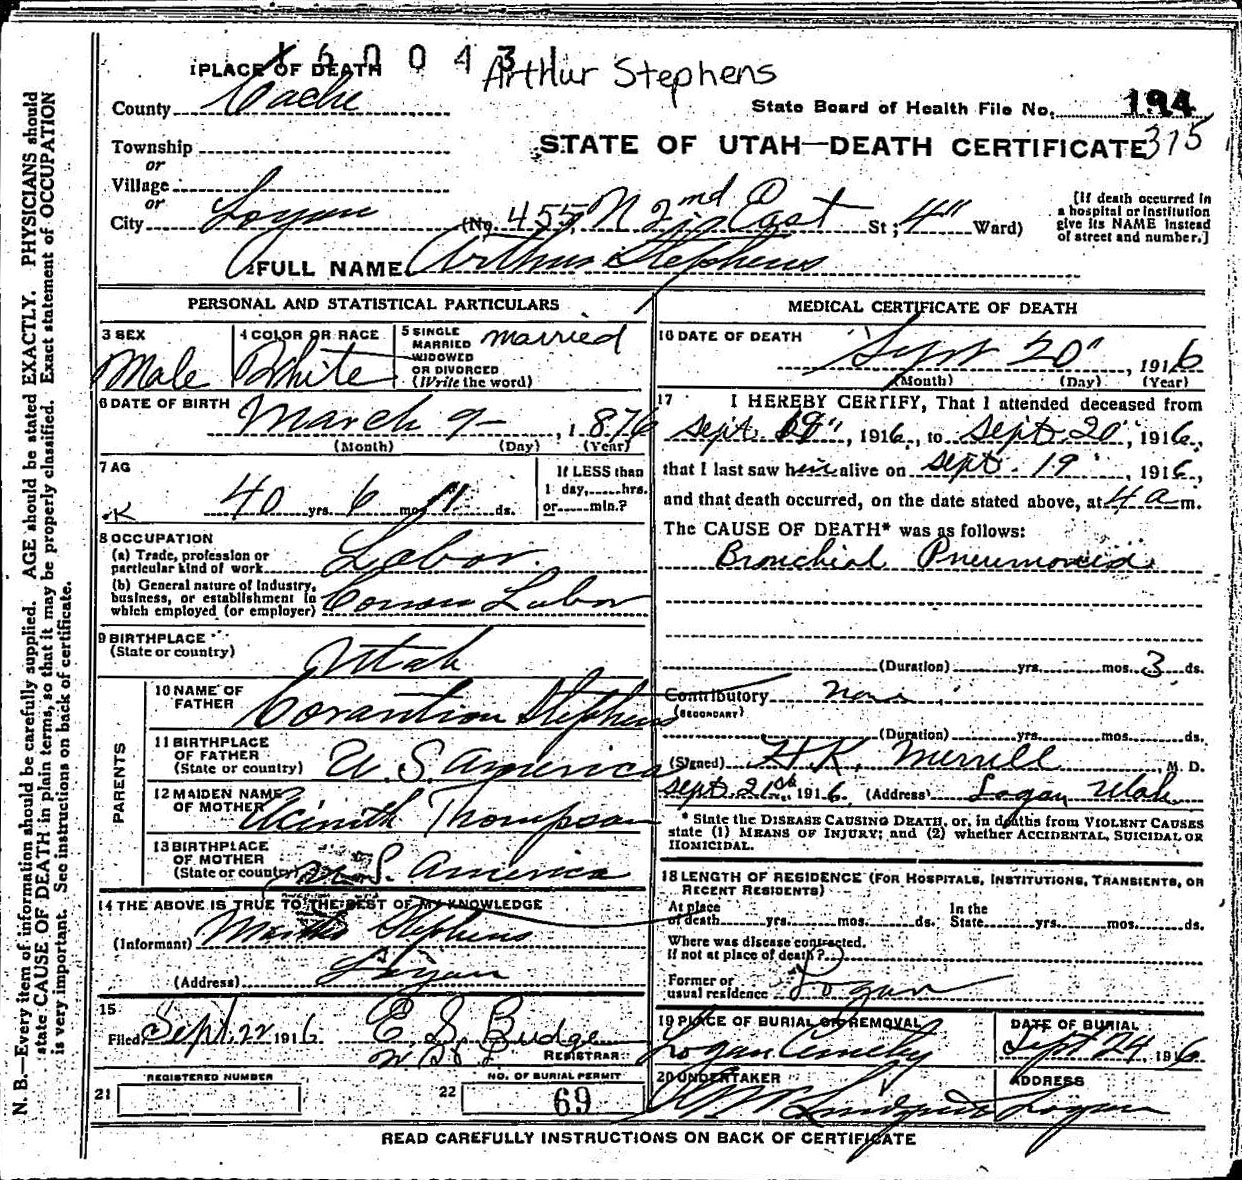 160043
1 PLACE OF DEATH
Arthur Stephens
County Cache
State Board of Health File No. 194
Township
STATE OF UTAH—DEATH CERTIFICATE 375
or
Village
or
City Logan (No. 455 N 2nd East St; 4" Ward)
[If death occurred in
a hospital or institution
give its NAME instead
of street and number.]
2 FULL NAME Arthur Stephens
PERSONAL AND STATISTICAL PARTICULARS
3 SEX
Male
4 COLOR OR RACE
White
5 SINGLE
MARRIED
WIDOWED
OR DIVORCED
(Write the word)
married
6 DATE OF BIRTH
March 9- , 1876
(Month) (Day) (Year)
7 AG
40 yrs. 6 mos 11 ds.
If LESS than
1 day,......hrs.
or......min.?
8 OCCUPATION
(a) Trade, profession or
particular kind of work Labor.
(b) General nature of industry,
business, or establishment in
which employed (or employer) Labor
9 BIRTHPLACE
(State or country)
Utah
PARENTS
10 NAME OF
FATHER
Stephens
11 BIRTHPLACE
OF FATHER
(State or country) U. S. America
12 MAIDEN NAME
OF MOTHER Thompson
13 BIRTHPLACE
OF MOTHER
(State or country) S. America
14 THE ABOVE IS TRUE TO THE BEST OF MY KNOWLEDGE
(Informant) Stephens
(Address) Logan
15
Filed Sept. 22 1916 E. S. Budge
REGISTRAR
REGISTERED NUMBER
21
NO. OF BURIAL PERMIT
22 69
MEDICAL CERTIFICATE OF DEATH
16 DATE OF DEATH
Sept 20" , 1916
(Month) (Day) (Year)
17 I HEREBY CERTIFY, That I attended deceased from
Sept. 19", 1916, to Sept. 20", 1916,
that I last saw him alive on Sept. 19", 1916,
and that death occurred, on the date stated above, at 4 a m.
The CAUSE OF DEATH* was as follows:
Bronchial Pneumonia
(Duration) yrs. mos. 3 ds.
Contributory none
(SECONDARY)
(Duration) yrs. mos. ds.
(Signed) H. K. Merrill, M. D.
Sept. 21st, 1916 (Address) Logan Utah
* State the DISEASE CAUSING DEATH, or, in deaths from VIOLENT CAUSES
state (1) MEANS OF INJURY; and (2) whether ACCIDENTAL, SUICIDAL OR
HOMICIDAL.
18 LENGTH OF RESIDENCE (FOR HOSPITALS, INSTITUTIONS, TRANSIENTS, OR
RECENT RESIDENTS)
At place
of death yrs. mos. ds.
In the
State yrs. mos. ds.
Where was disease contracted,
if not at place of death?
Former or
usual residence Logan
19 PLACE OF BURIAL OR REMOVAL
Logan Cemetery
DATE OF BURIAL
Sept 24 1916
20 UNDERTAKER
Lindquist
ADDRESS
Logan
READ CAREFULLY INSTRUCTIONS ON BACK OF CERTIFICATE
N. B.—Every item of information should be carefully supplied. AGE should be stated EXACTLY. PHYSICIANS should
state CAUSE OF DEATH in plain terms, so that it may be properly classified. Exact statement of OCCUPATION
is very important. See instructions on back of certificate.